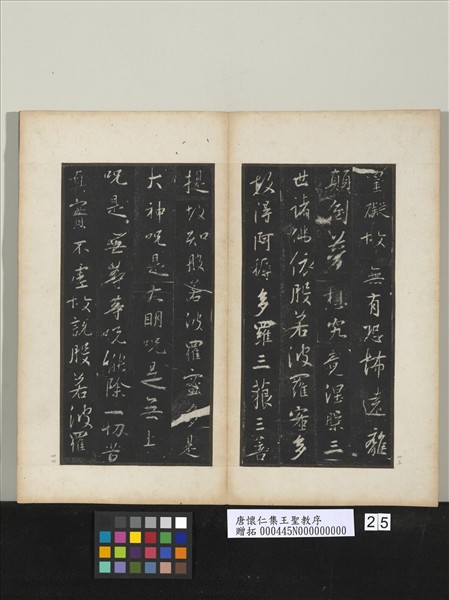 罣礙故無有恐怖遠離
顛倒夢想究竟涅槃三
世諸佛依般若波羅蜜多
故得阿耨多羅三藐三菩
提故知般若波羅蜜多是
大神呪是大明呪是無上
呪是無等等呪能除一切苦
真實不虛故說般若波羅
唐懷仁集王聖教序
贈拓 000445N000000000
25